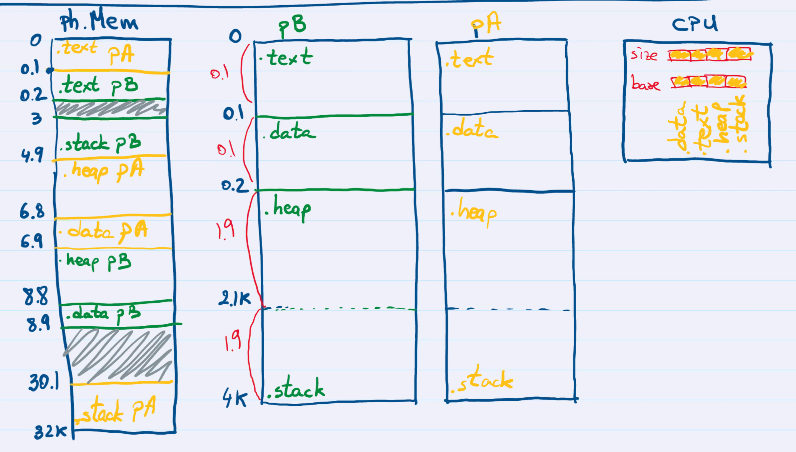 ph.Mem
0
.text pA
0.1
.text pB
0.2
3
.stack pB
4.9
.heap pA
6.8
.data pA
6.9
.heap pB
8.8
.data pB
8.9
30.1
.stack pA
32K
pB
0
.text
0.1
0.1
.data
0.1
0.2
.heap
1.9
2.1K
1.9
.stack
4K
pA
.text
.data
.heap
.stack
CPU
size
base
.data
.text
.heap
.stack